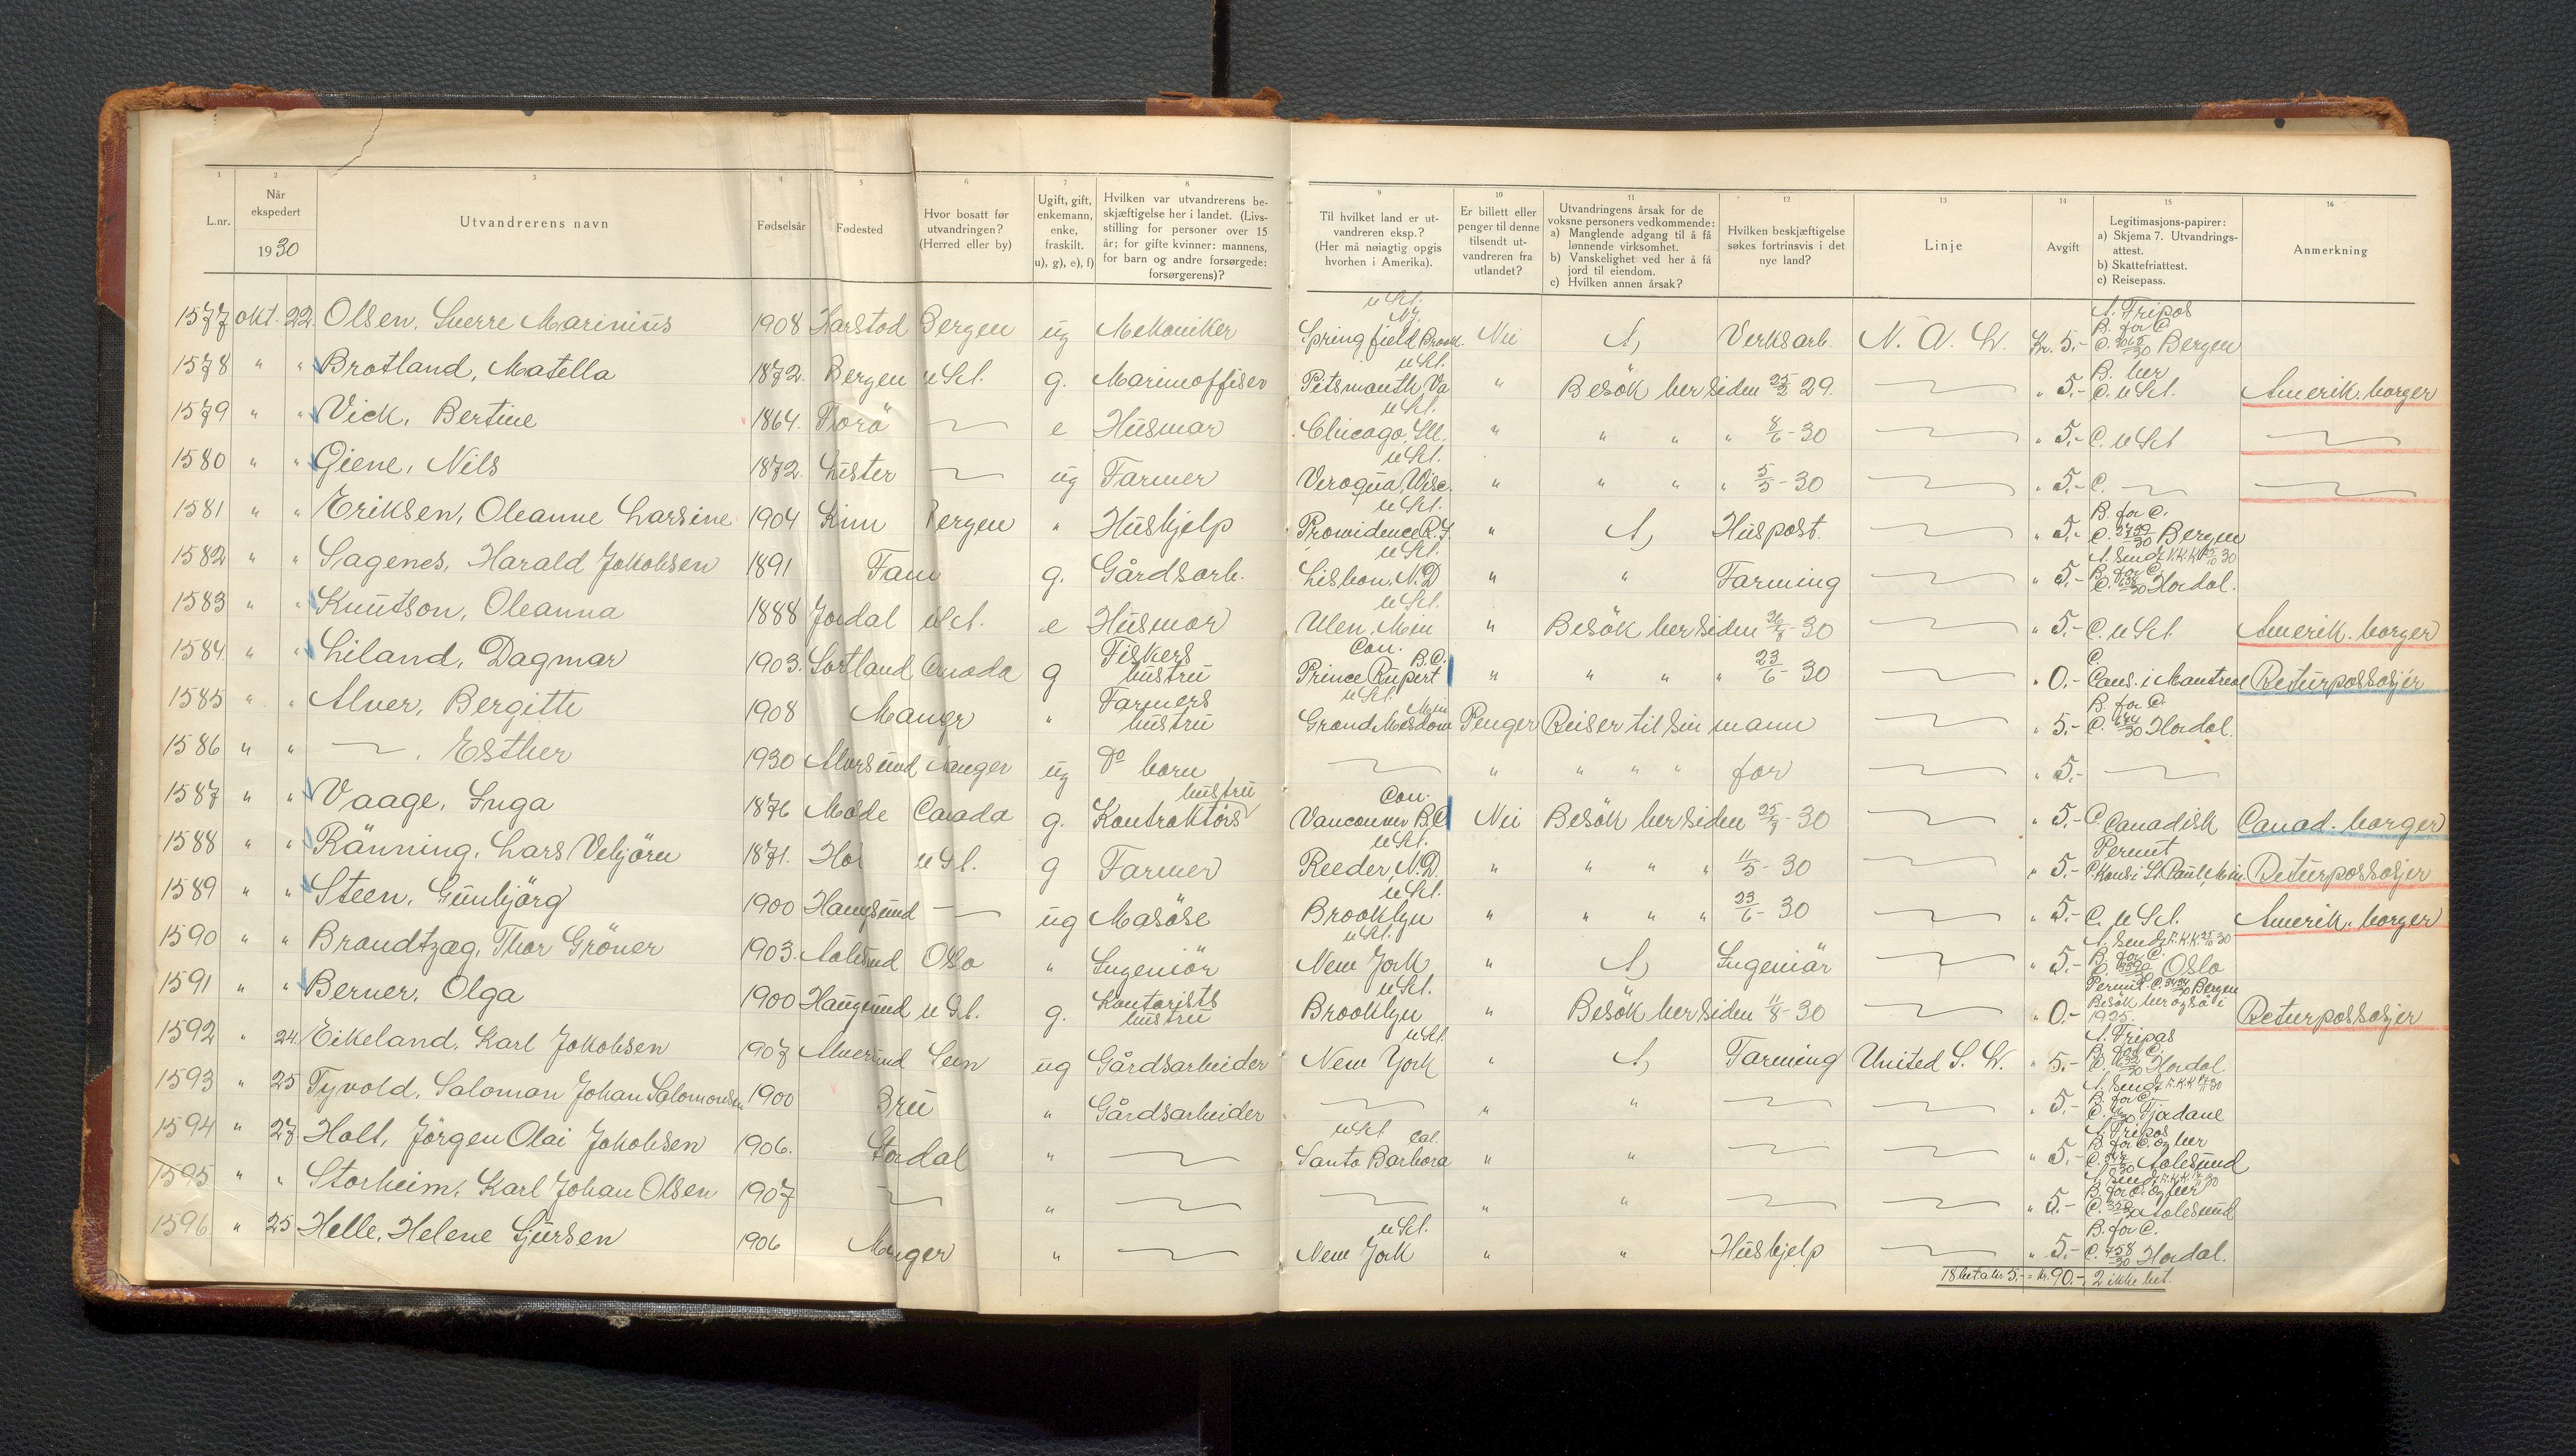 1 2 3 4 5 6 7 8 9 10 11 12 13 14 15 16
L.nr. Når ekspedert 1930 Utvandrerens navn Fødselsår Fødested Hvor bosatt før utvandringen? (Herred eller by) Ugift, gift, enkemann, enke, fraskilt. u), g), e), f) Hvilken var utvandrerens beskjæftigelse her i landet. (Livsstilling for personer over 15 år; for gifte kvinner: mannens, for barn og andre forsørgede: forsørgerens)? Til hvilket land er utvandreren eksp.? (Her må nøiagtig opgis hvorhen i Amerika). Er billett eller penger til denne tilsendt utvandreren fra utlandet? Utvandringens årsak for de voksne personers vedkommende: a) Manglende adgang til å få lønnende virksomhet. b) Vanskelighet ved her å få jord til eiendom. c) Hvilken annen årsak? Hvilken beskjæftigelse søkes fortrinsvis i det nye land? Linje Avgift Legitimasjons-papirer: a) Skjema 7. Utvandringsattest. b) Skattefriattest. c) Reisepass. Anmerkning
1577 okt. 22. Olsen, Sverre Marinius 1908 Harstad Bergen ug Mekaniker U.St. N.Y. Springfield Brook. Nei A, Verksarb. N. A. L. Kr. 5.- A. Tripos B. for C. C. Bergen
1578 " " Brotland, Matella 1872. Bergen U.St. g. Marineoffiser U.St. Petsmauth, Va " Besök her siden 25/2 29. " 5.- B. her C. U.St. Amerik. borger
1579 " " Vick, Bertine 1864. Florö e Husmor U.St. Chicago, Ill. " " " " 8/6-30 " 5.- C. U.St
1580 " " Giene, Nils 1872. Luster ug Farmer U.St. Viroqua, Wisc. " " " " 5/5-30 " 5.- C.
1581 " " Eriksen, Oleanne Larsine 1904 Kinn Bergen " Hushjelp U.St. Providence R.I. " A, Huspost. " 5.- B. for C. C. Bergen
1582 " " Sagenes, Harald Jakobsen 1891 Fane g. Gårdsarb. U.St. Lisbon, N.D " " Farming " 5.- A. Sendt K.K.K. 25/10 30 B. for C. C. Hordal.
1583 " " Knutson, Oleanna 1888 Jondal U.St. e Husmor U.St. Ulen, Min " Besök her siden 30 " 5.- C. U.St Amerik. borger
1584 " " Liland, Dagmar 1903. Sortland Canada g Fiskers hustru Can. Prince Rupert B.C. " " " " 23/6-30 " 0.- C. Cans. i Montreal Returpassasjer
1585 " " Alver, Bergitte 1908 Manger " Farmers hustru U.St. Min Grand Meadow Penger Reiser til sin mann " 5.- B. for C. C. Hordal.
1586 " " Esther 1930 Alversund Manger ug Do barn " " " " far " 5.-
1587 " " Vaage, Inga 1876 Molde Canada g. Kontraktörs hustru Can. Vancouver B.C Nei Besök her siden 30 " 5.- C Canadisk Canad. borger
1588 " " Rönning, Lars Vebjörn 1871. Hol U.St. g Farmer U.St. Reeder, N.D. " " " " 11/5-30 " 5.- Permit C. Kons i St. Paul, Min. Returpassasjer
1589 " " Steen, Gunbjörg 1900 Haugesund ug Masöse U.St. Brooklyn " " " " 23/6-30 " 5.- C. U.St. Amerik. borger
1590 " " Brandtzæg, Thor Gröner 1903. Aalesund Oslo " Ingeniör U.St. New York " A, Ingeniör " 5.- A. Sendt K.K.K. 25/10 30 B. for C. C. Oslo
1591 " " Berner, Olga 1900 Haugesund U.St. g. Kontorists hustru U.St. Brooklyn " Besök her siden 11/8-30 " 0.- Permit C. Bergen Besök her også i 1925. Returpassasjer
1592 " 24. Eikeland, Karl Jakobsen 1907 Alversund Sein ug Gårdsarbeider U.St. New York " A, Farming United S. L. " 5.- A. Tripos B. for C. C. Hordal.
1593 " 25 Tyvold, Saloman Johan Salomonsen 1900 Bru " Gårdsarbeider " " " 5.- A. Sendt K.K.K. B. for C. C. Fjordane
1594 " 27 Holt, Jörgen Olai Jakobsen 1906. Stordal " U.St Cal. Santa Barbara " " " 5.- A. Tripos B. for C. og her C. Aalesund
1595 " " Storheim, Karl Johan Olsen 1907 " " " " 5.- A. Sendt K.K.K. B. for C. og her C. Aalesund
1596 " 25 Helle, Helene Sjursen 1906 Manger " U.St. New York " " Hushjelp " 5.- B. for C. C. 758/30 Hordal.
18 bet. a kr. 5.- = kr. 90.- 2 ikke bet.